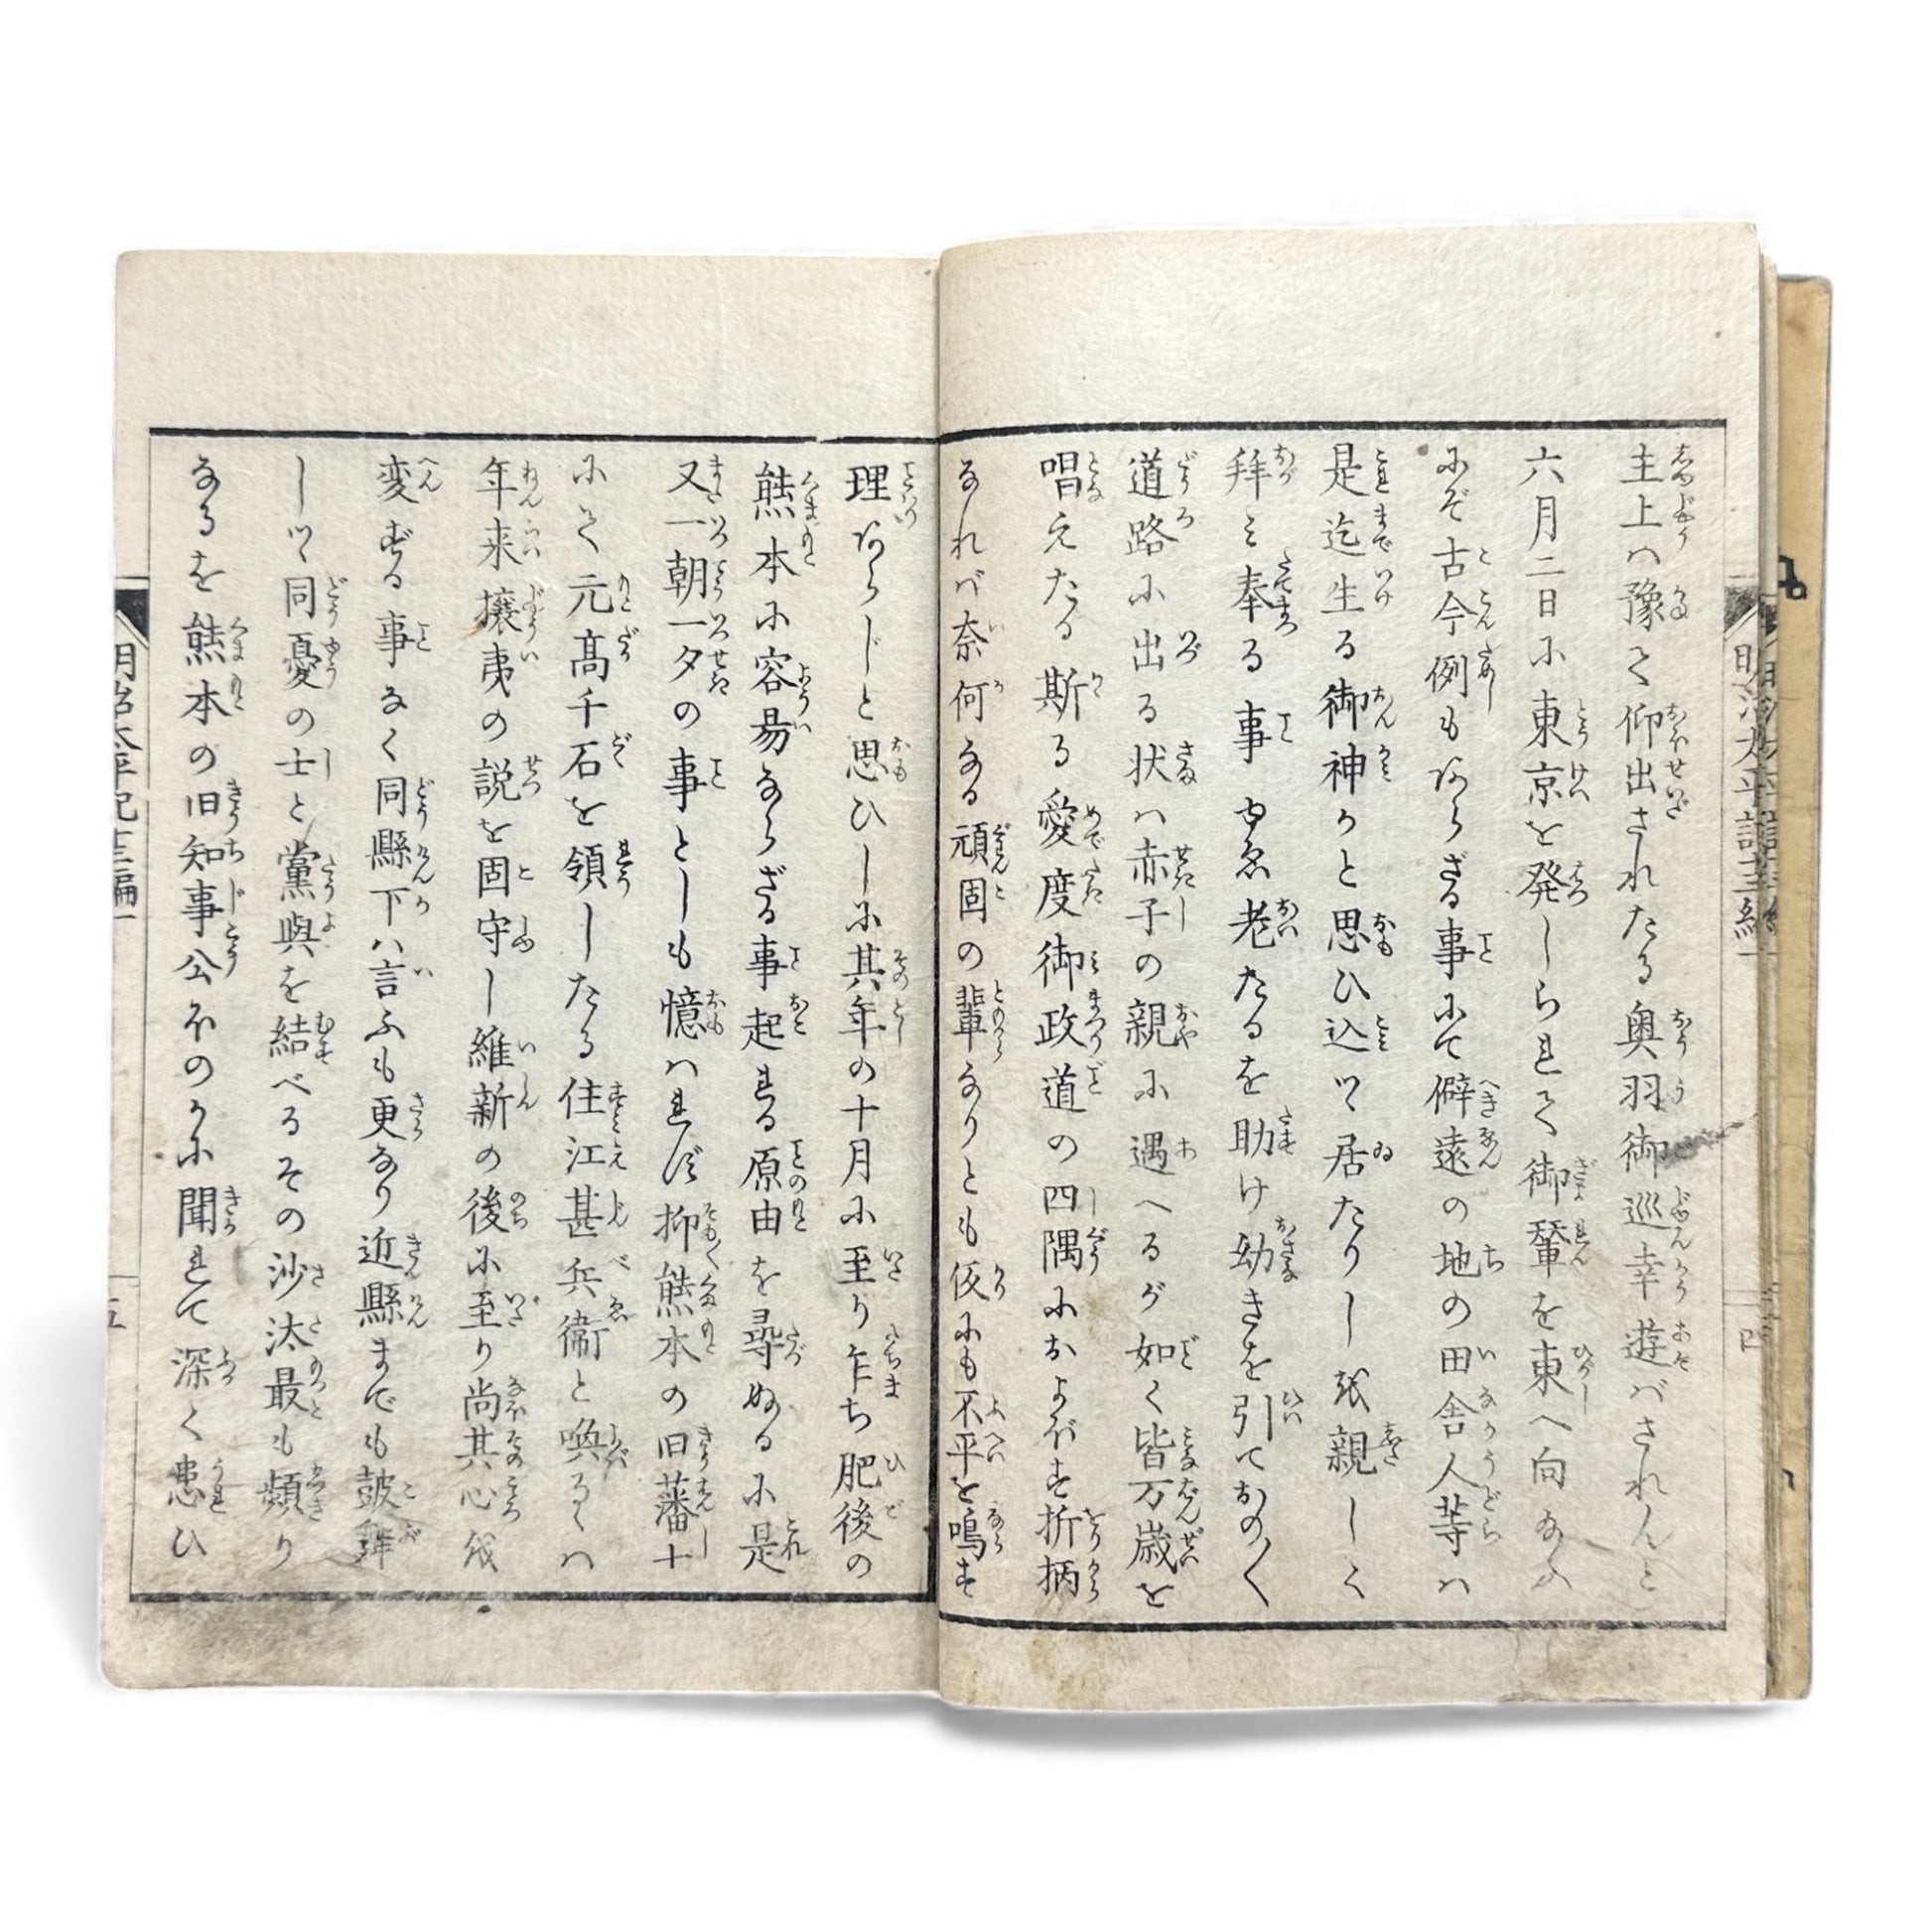 主上ハ豫て仰出されたる奥羽御巡幸遊バされんと
六月二日に東京を発しられて御輦を東へ向たまふ
にぞ古今例もあらざる事にて僻遠の地の田舎人等ハ
是迄生る御神かと思ひ込ツヽ居たりしが親しく
拝ミ奉る事ゆゑ老たるを助け幼きを引ておの〱
道路に出る状ハ赤子の親に遇へるが如く皆万歳を
唱えたる斯る愛度御政道の四隅におよばず折柄
なれバ奈何なる頑固の輩なりとも仮にも不平を鳴す
理あらじと思ひしに其年の十月に至り乍ち肥後の
熊本に容易ならざる事起れる原由を尋ぬるに是
又一朝一夕の事としも憶ハれず抑熊本の旧藩士
にて元高千石を領したる住江甚兵衞と喚るゝハ
年来攘夷の説を固守し維新の後に至り尚其心を
変ずる事なく同縣下ハ言ふも更なり近縣までも皷舞
しツヽ同憂の士と黨與を結べるその沙汰最も頻り
なるを熊本の旧知事公ほのかに聞れて深く患ひ
明治太平記十二編一
五